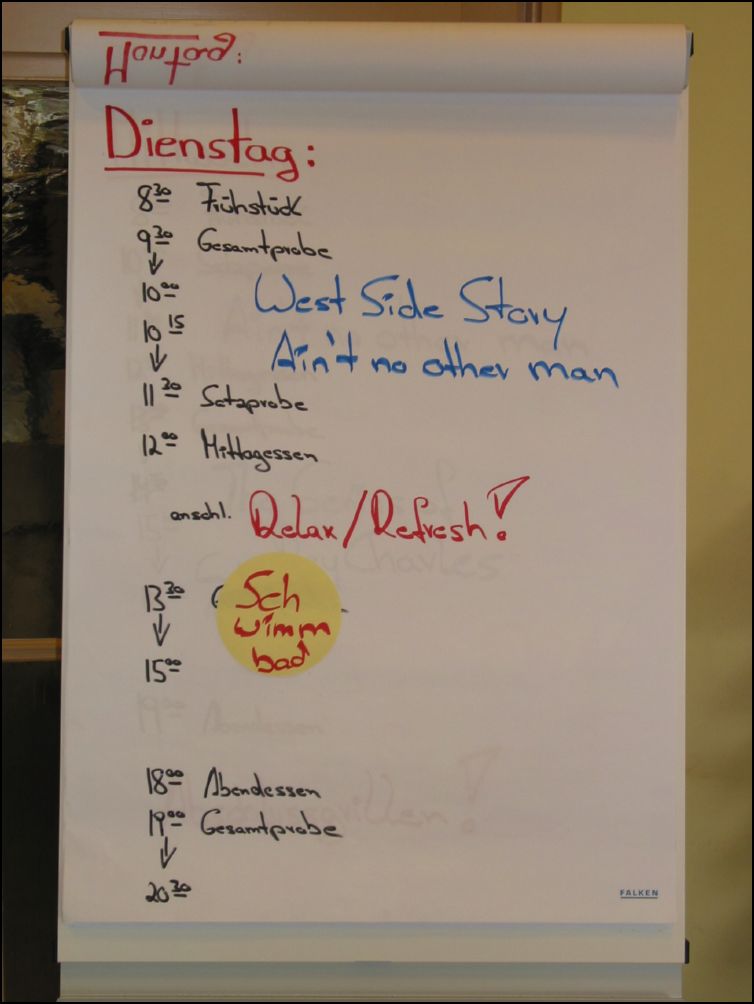 Dienstag:
8³⁰ Frühstück
9³⁰ Gesamtprobe
↓
10⁰⁰ West Side Story
10¹⁵
↓ Ain't no other man
11³⁰ Satzprobe
12⁰⁰ Mittagessen
anschl. Relax/Refresh!
13³⁰ Sch
↓ wimm
bad
15⁰⁰
18⁰⁰ Abendessen
19⁰⁰ Gesamtprobe
↓
20³⁰
FALKEN